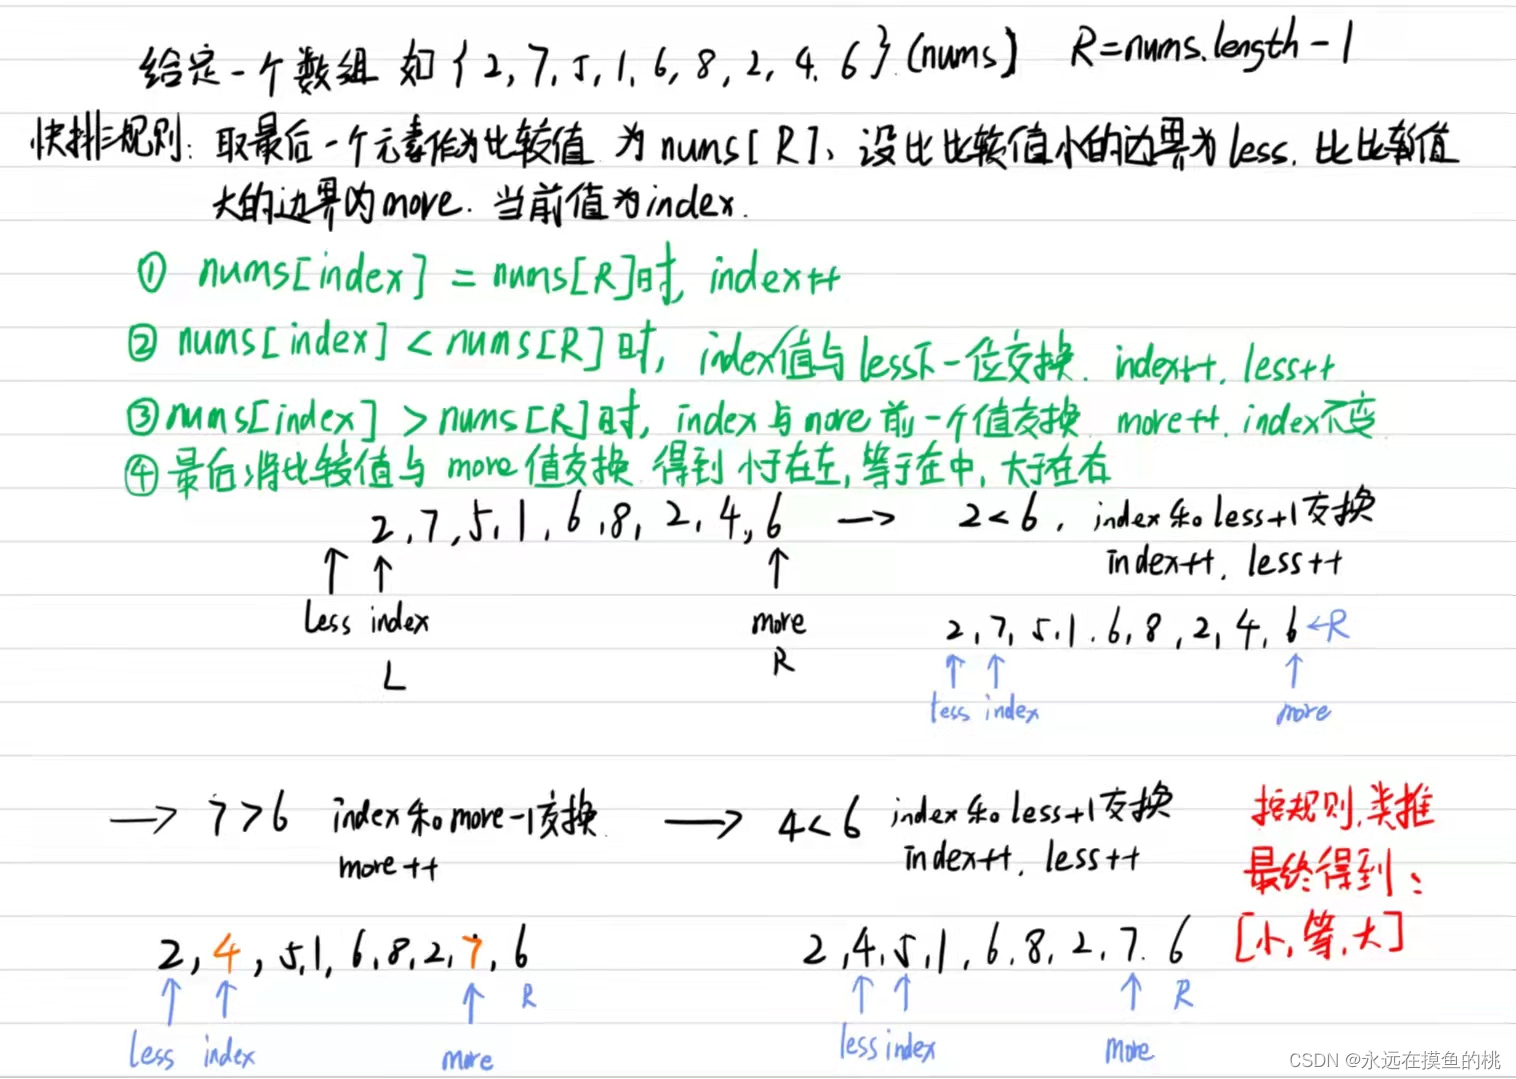 给定一个数组 如{2,7,5,1,6,8,2,4,6}.(nums) R=nums.length-1
快排规则: 取最后一个元素作为比较值 为nums[R]、设比比较值小的边界为less. 比比较值
大的边界为more. 当前值为index.
① nums[index] = nums[R]时, index++
② nums[index] < nums[R]时, index值与less下一位交换. index++. less++
③ nums[index] > nums[R]时, index与more前一个值交换. more++. index不变
④ 最后将比较值与 more值交换 得到 小于在左,等于在中,大于在右
2,7,5,1,6,8,2,4,6 → 2<6, index和less+1交换
index++, less++
less index more
L R
2,7,5,1.6,8,2,4,6←R
less index more
→ 7>6 index和more-1交换.
more++
→ 4<6 index和less+1交换
index++, less++
按规则,类推
最终得到:
[小,等,大]
2,4,5,1,6,8,2,7,6
R
less index more
2,4,5,1,6,8,2,7.6
R
less index more
CSDN @永远在摸鱼的桃